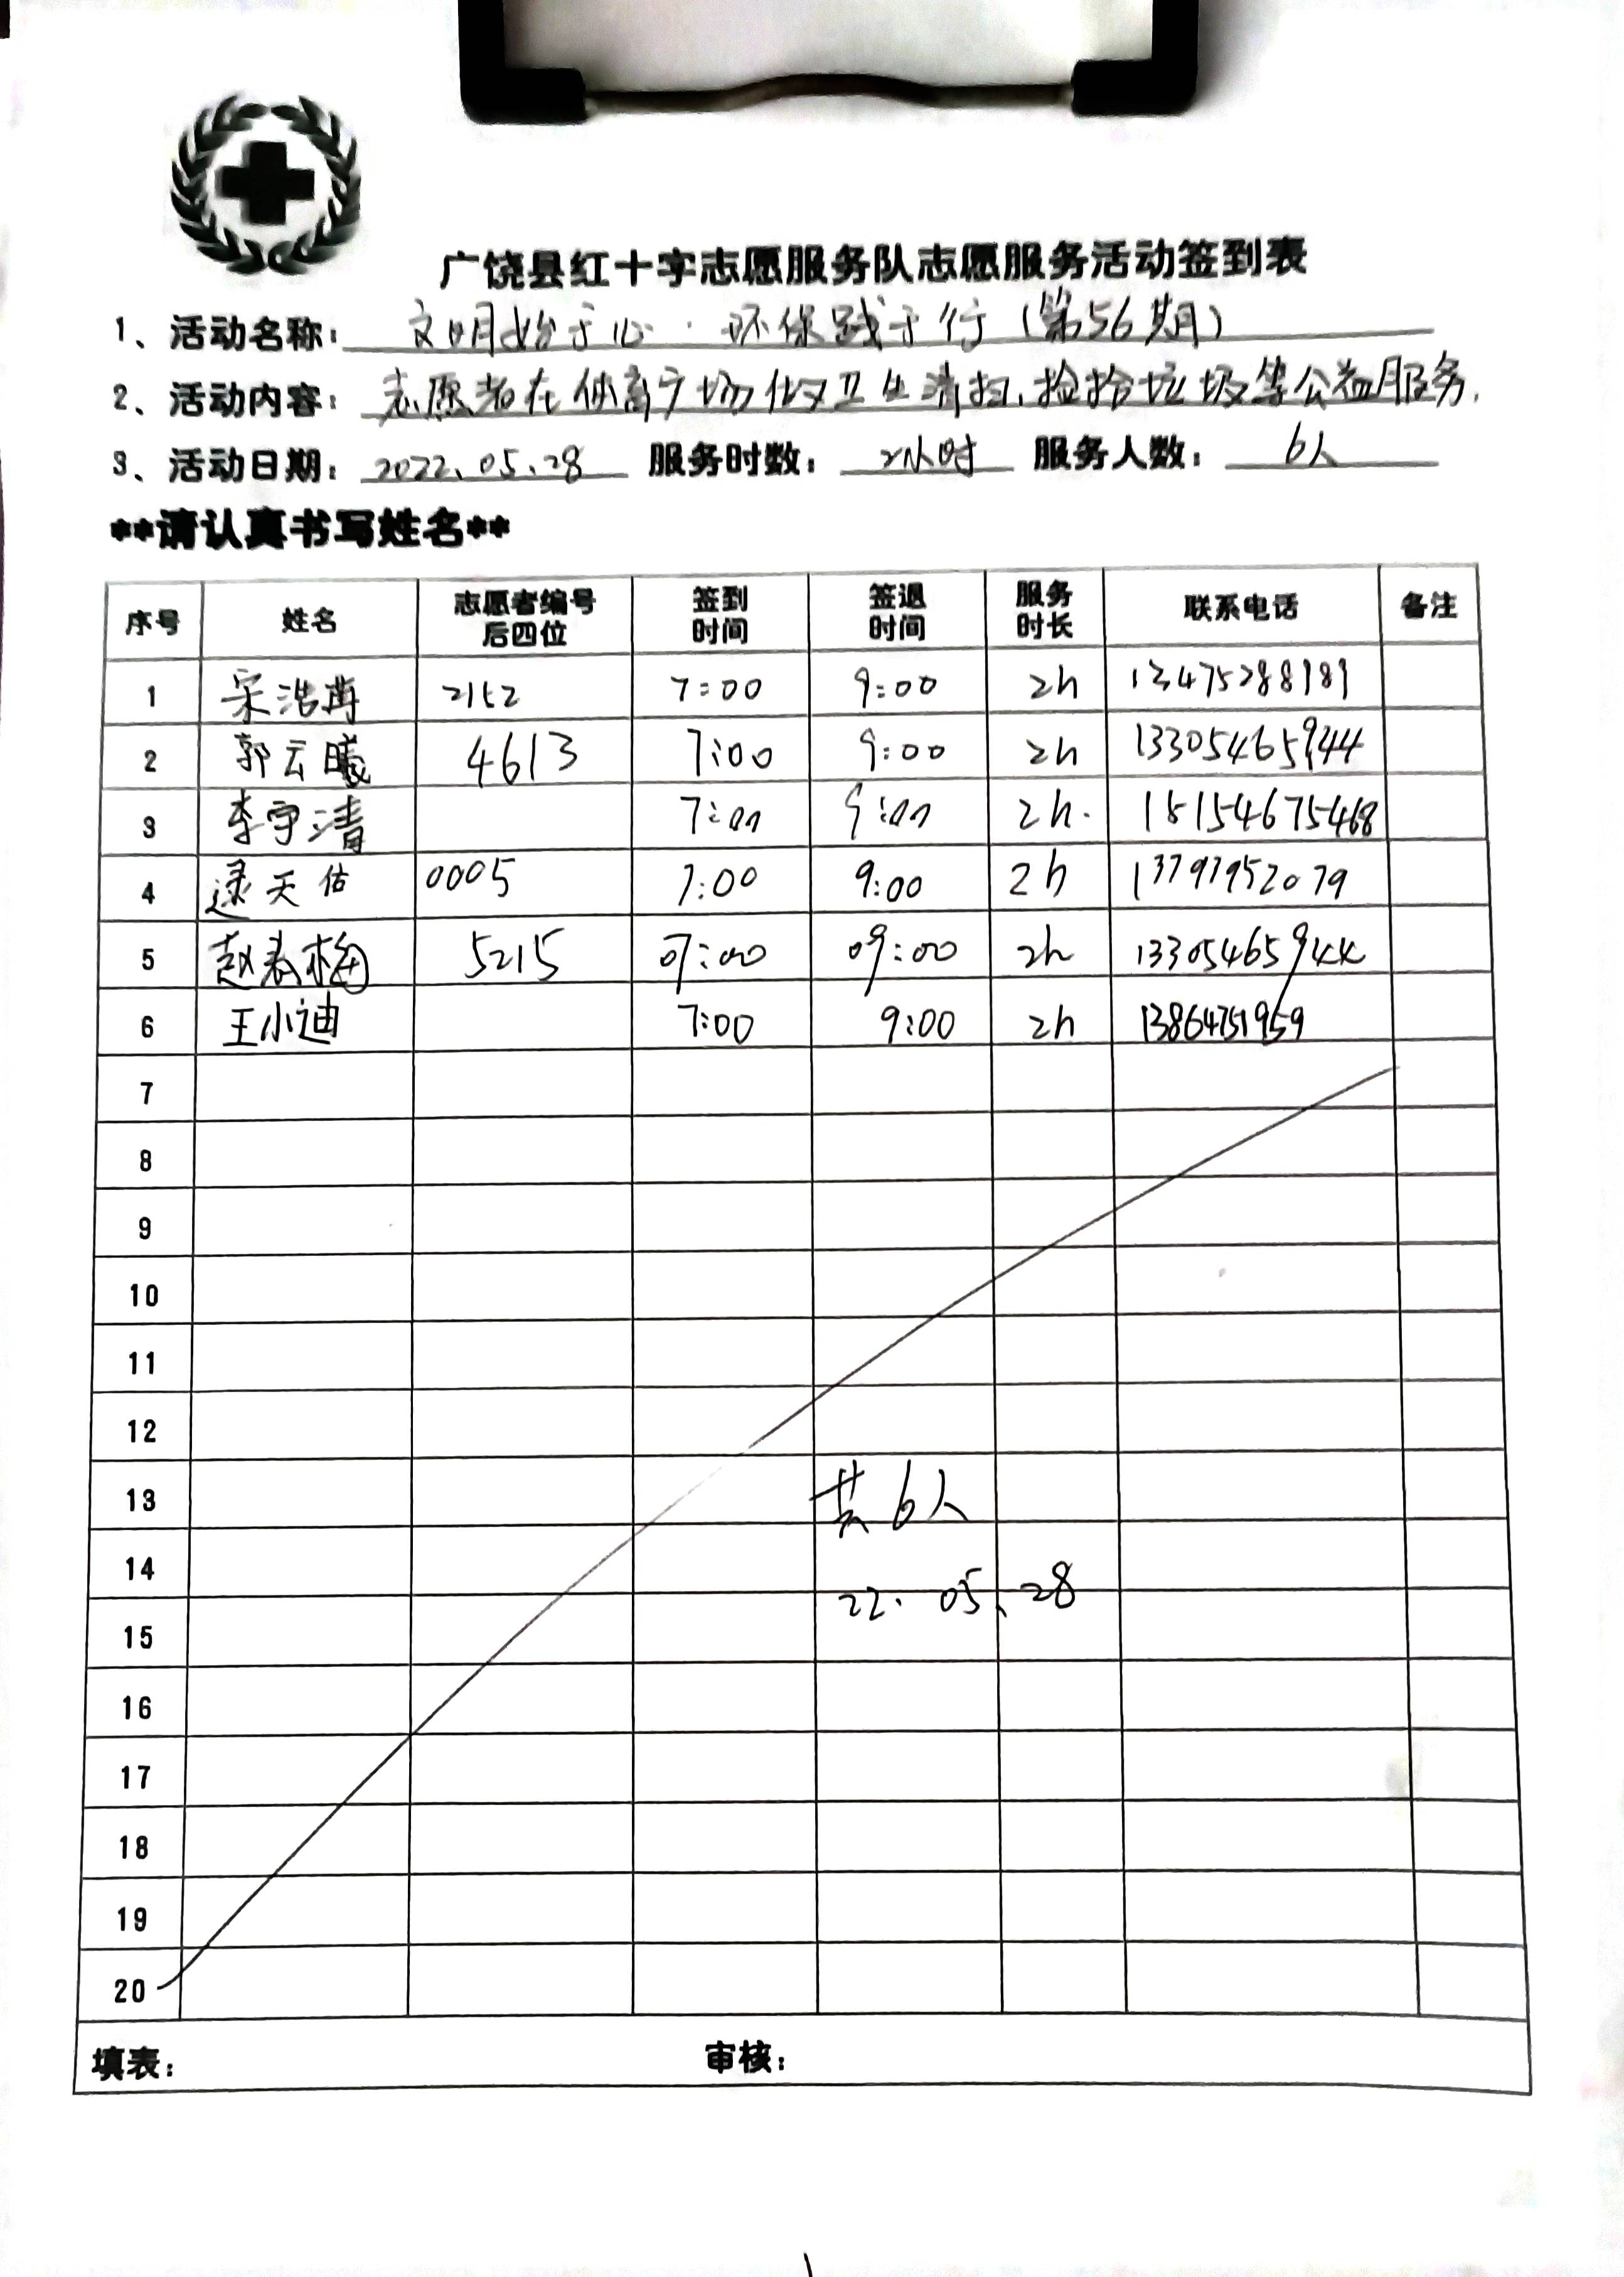 广饶县红十字志愿服务队志愿服务活动签到表
1、活动名称：文明始于心·环保践于行（第56期）
2、活动内容：志愿者在体育广场做卫生清扫、捡拾垃圾等公益服务.
3、活动日期：2022.05.28 服务时数：2小时 服务人数：6人
**请认真书写姓名**
序号 姓名 志愿者编号后四位 签到时间 签退时间 服务时长 联系电话 备注
1 宋浩 2152 7:00 9:00 2h 13475288181
2 郭云曦 4613 7:00 9:00 2h 13305465944
3 李宇清 7:00 9:00 2h. 18154675468
4 逯天佑 0005 7:00 9:00 2h 13797952079
5 赵春梅 5215 07:00 09:00 2h 13305465944
6 王小迪 7:00 9:00 2h 13864751959
7
8
9
10
11
12
13 共6人
14
22.05.28
15
16
17
18
19
20
填表： 审核：